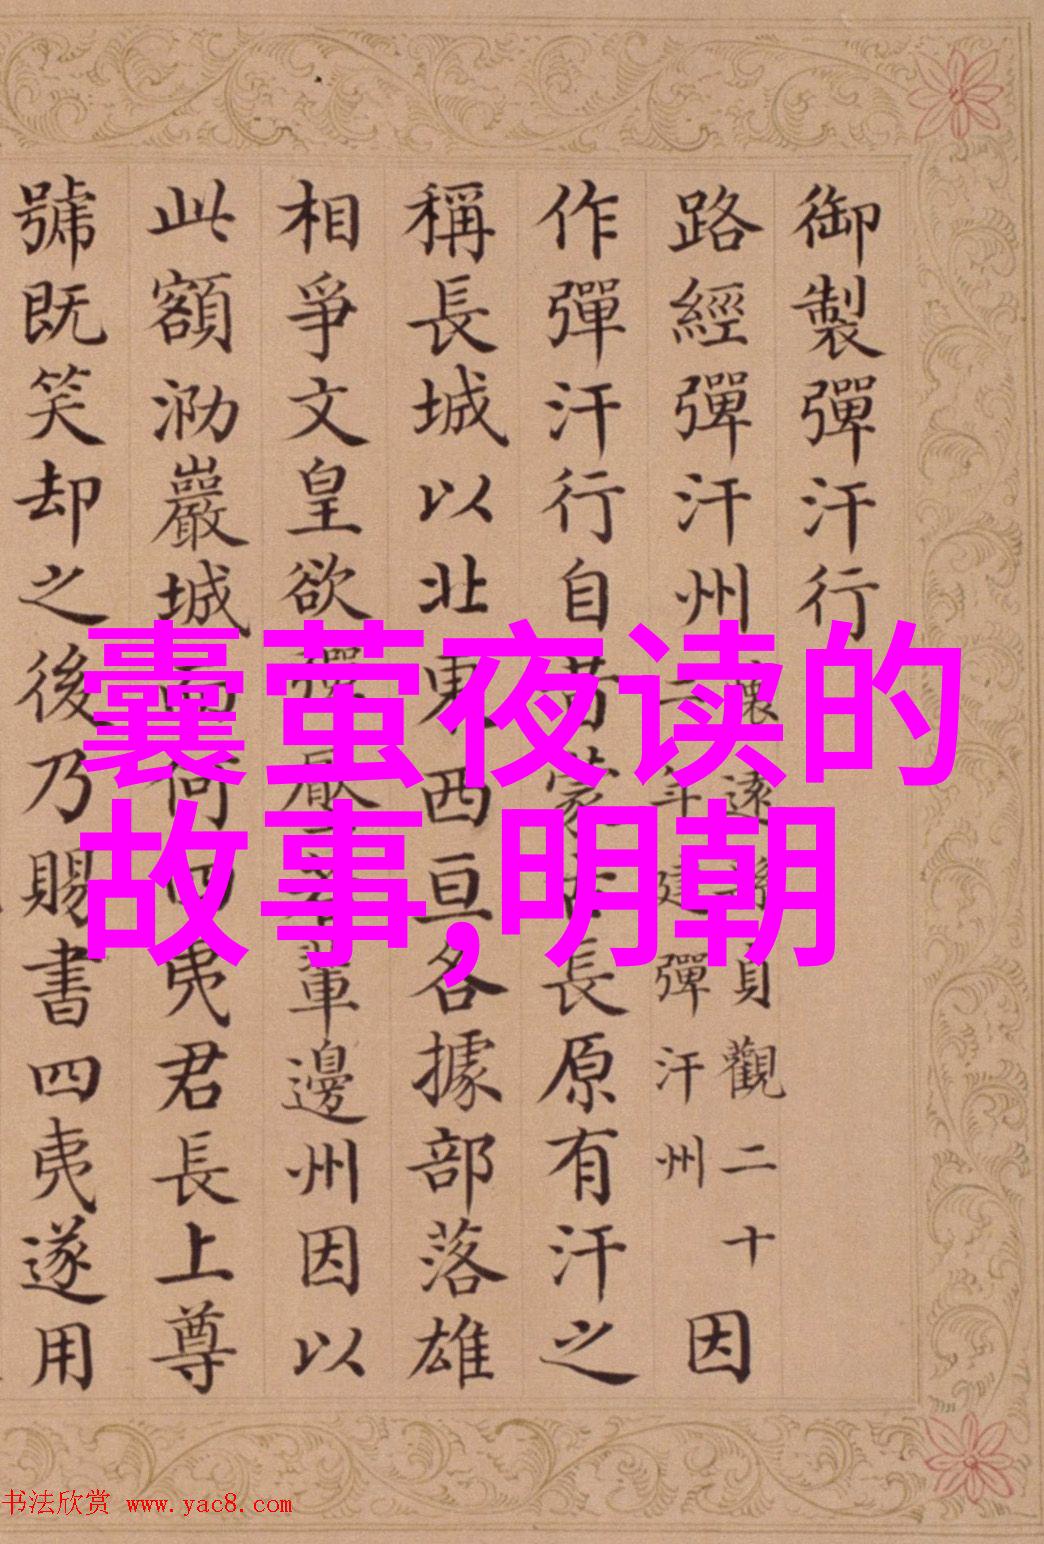 御製彈汗行
路經彈汗州
懷遠縣貞觀二十
二年建彈汗州
因
作彈汗行自昔蒙古長原有汗之
稱長城以北東西亘各據部落雄
相爭文皇欲邊州因以
此額泐巖城而何四夷君長上尊
號既笑却之後乃賜書四夷遂用
囊萤夜读的
故事,明朝
书法欣赏 www.yac8.com